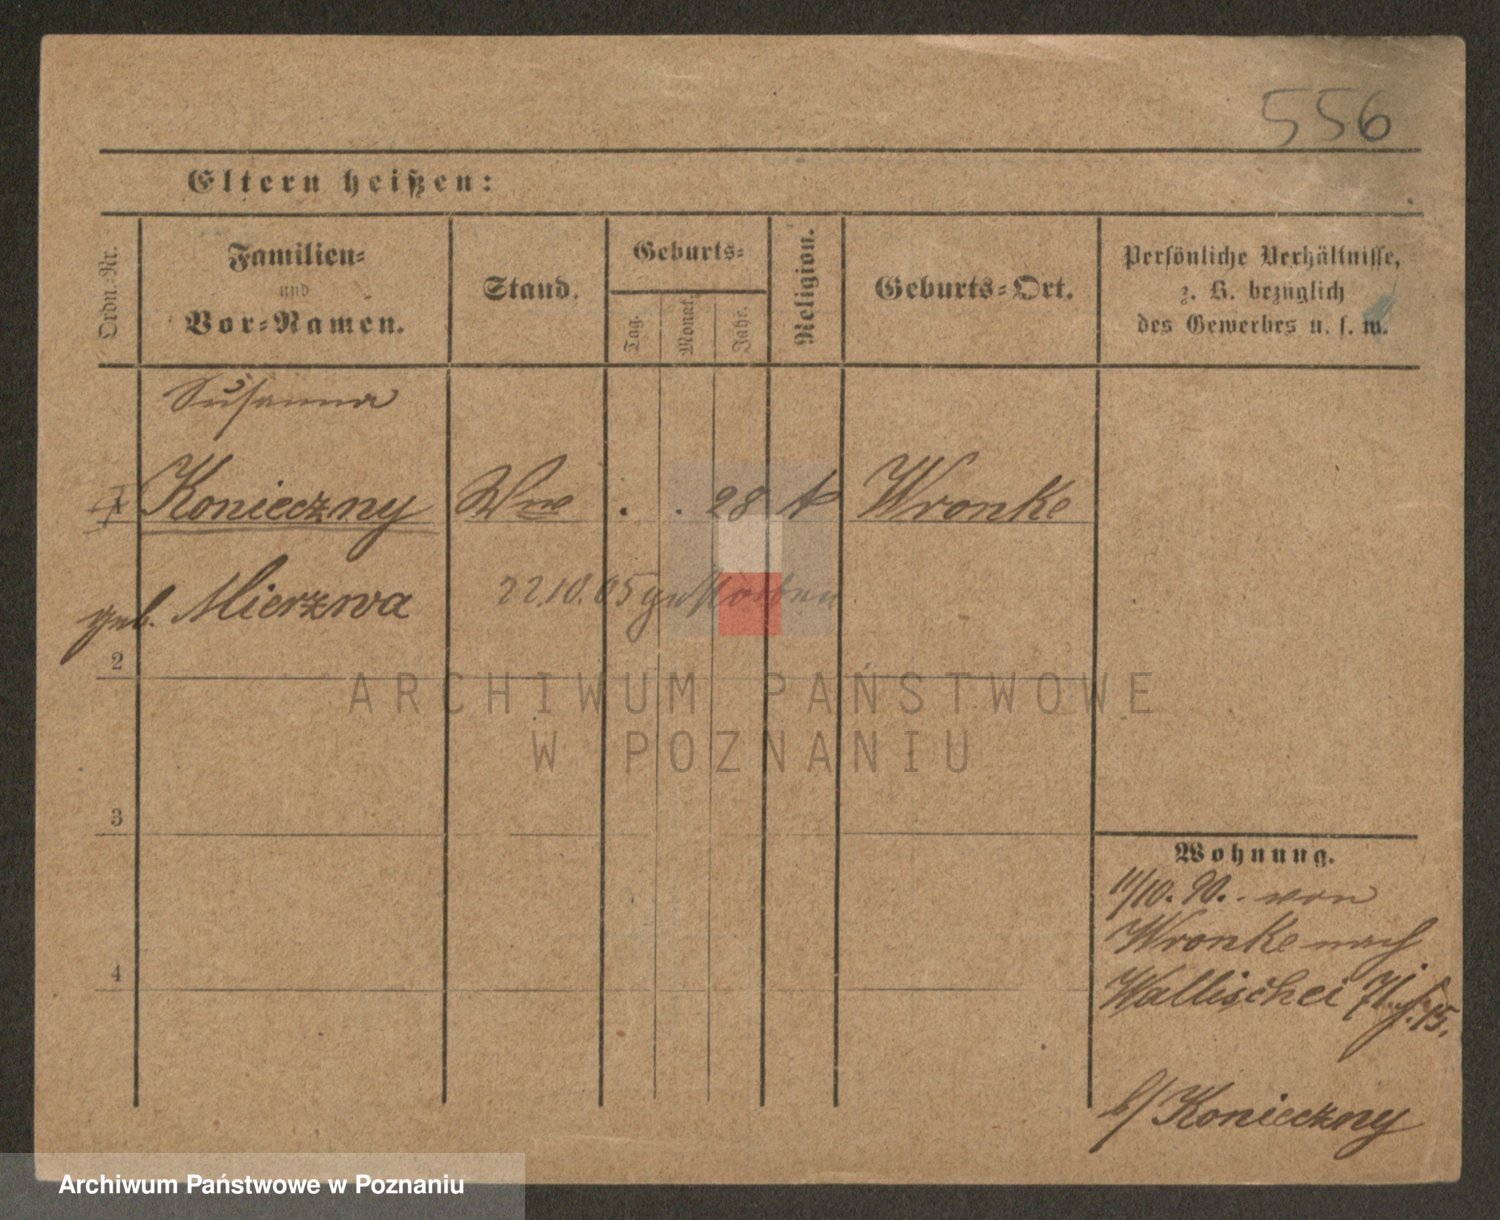 556
Eltern heißen:
Ordn. Nr.
Familien-
und
Vor-Namen.
Stand.
Geburts-
Tag.
Monat.
Jahr.
Religion.
Geburts-Ort.
Persönliche Verhältnisse,
z. B. bezüglich
des Gewerbes u. s. w.
Susanna
Konieczny Ww . . 28 k Wronke
geb. Mierzwa
22.10.05 gestorben
2
ARCHIWUM PAŃSTWOWE
W POZNANIU
3
Wohnung.
11/10. 90. von
Wronke nach
Wallischei 71. 15.
4
b/ Konieczny
Archiwum Państwowe w Poznaniu